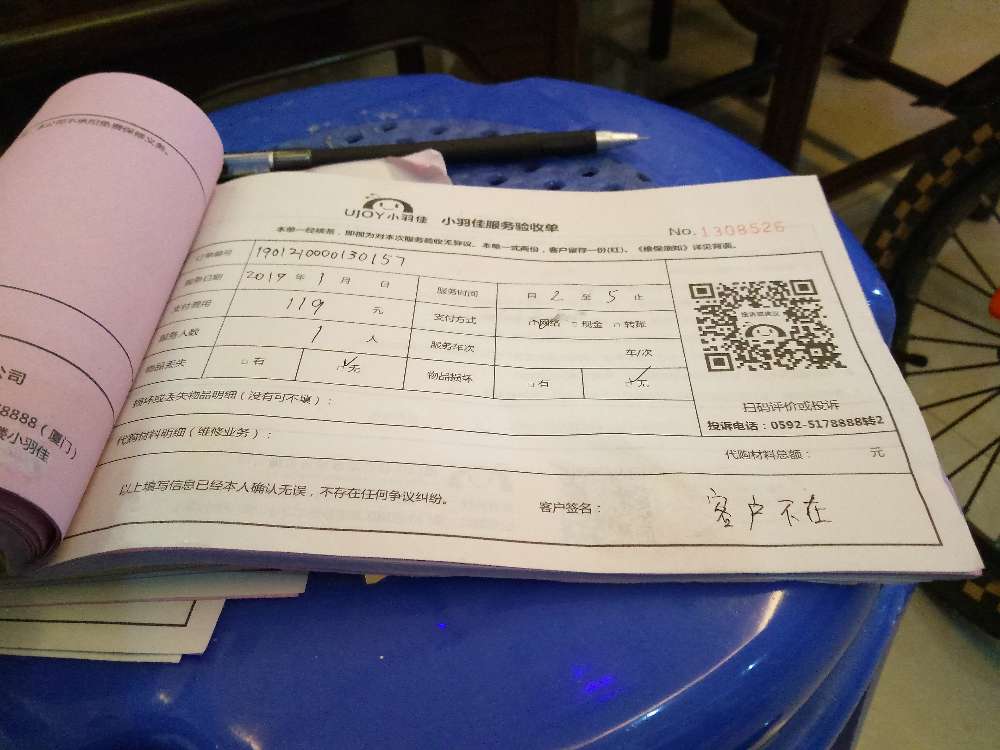 本公司不承担免费保修义务。
公司
78888（厦门）
楼小羽佳
UJOY小羽佳 小羽佳服务验收单
NO.1308526
本单一经续签，即视为对本次服务验收无异议。本单一式两份，客户留存一份(红)。《维保须知》详见背面。
订单编号 1901240000130157
服务日期 2019 年 1 月 日 服务时间 自 2 至 5 止
支付费用 119 元 支付方式 网络 □现金 □转账
服务人数 1 人 服务车次 车/次
物品丢失 □有 ✓无 物品损坏 □有 ✓无
投诉或建议
扫码评价或投诉
投诉电话：0592-5178888转2
损坏或丢失物品明细（没有可不填）：
代购材料明细（维修业务）：
代购材料总额： 元
以上填写信息已经本人确认无误，不存在任何争议纠纷。
客户签名： 客户不在